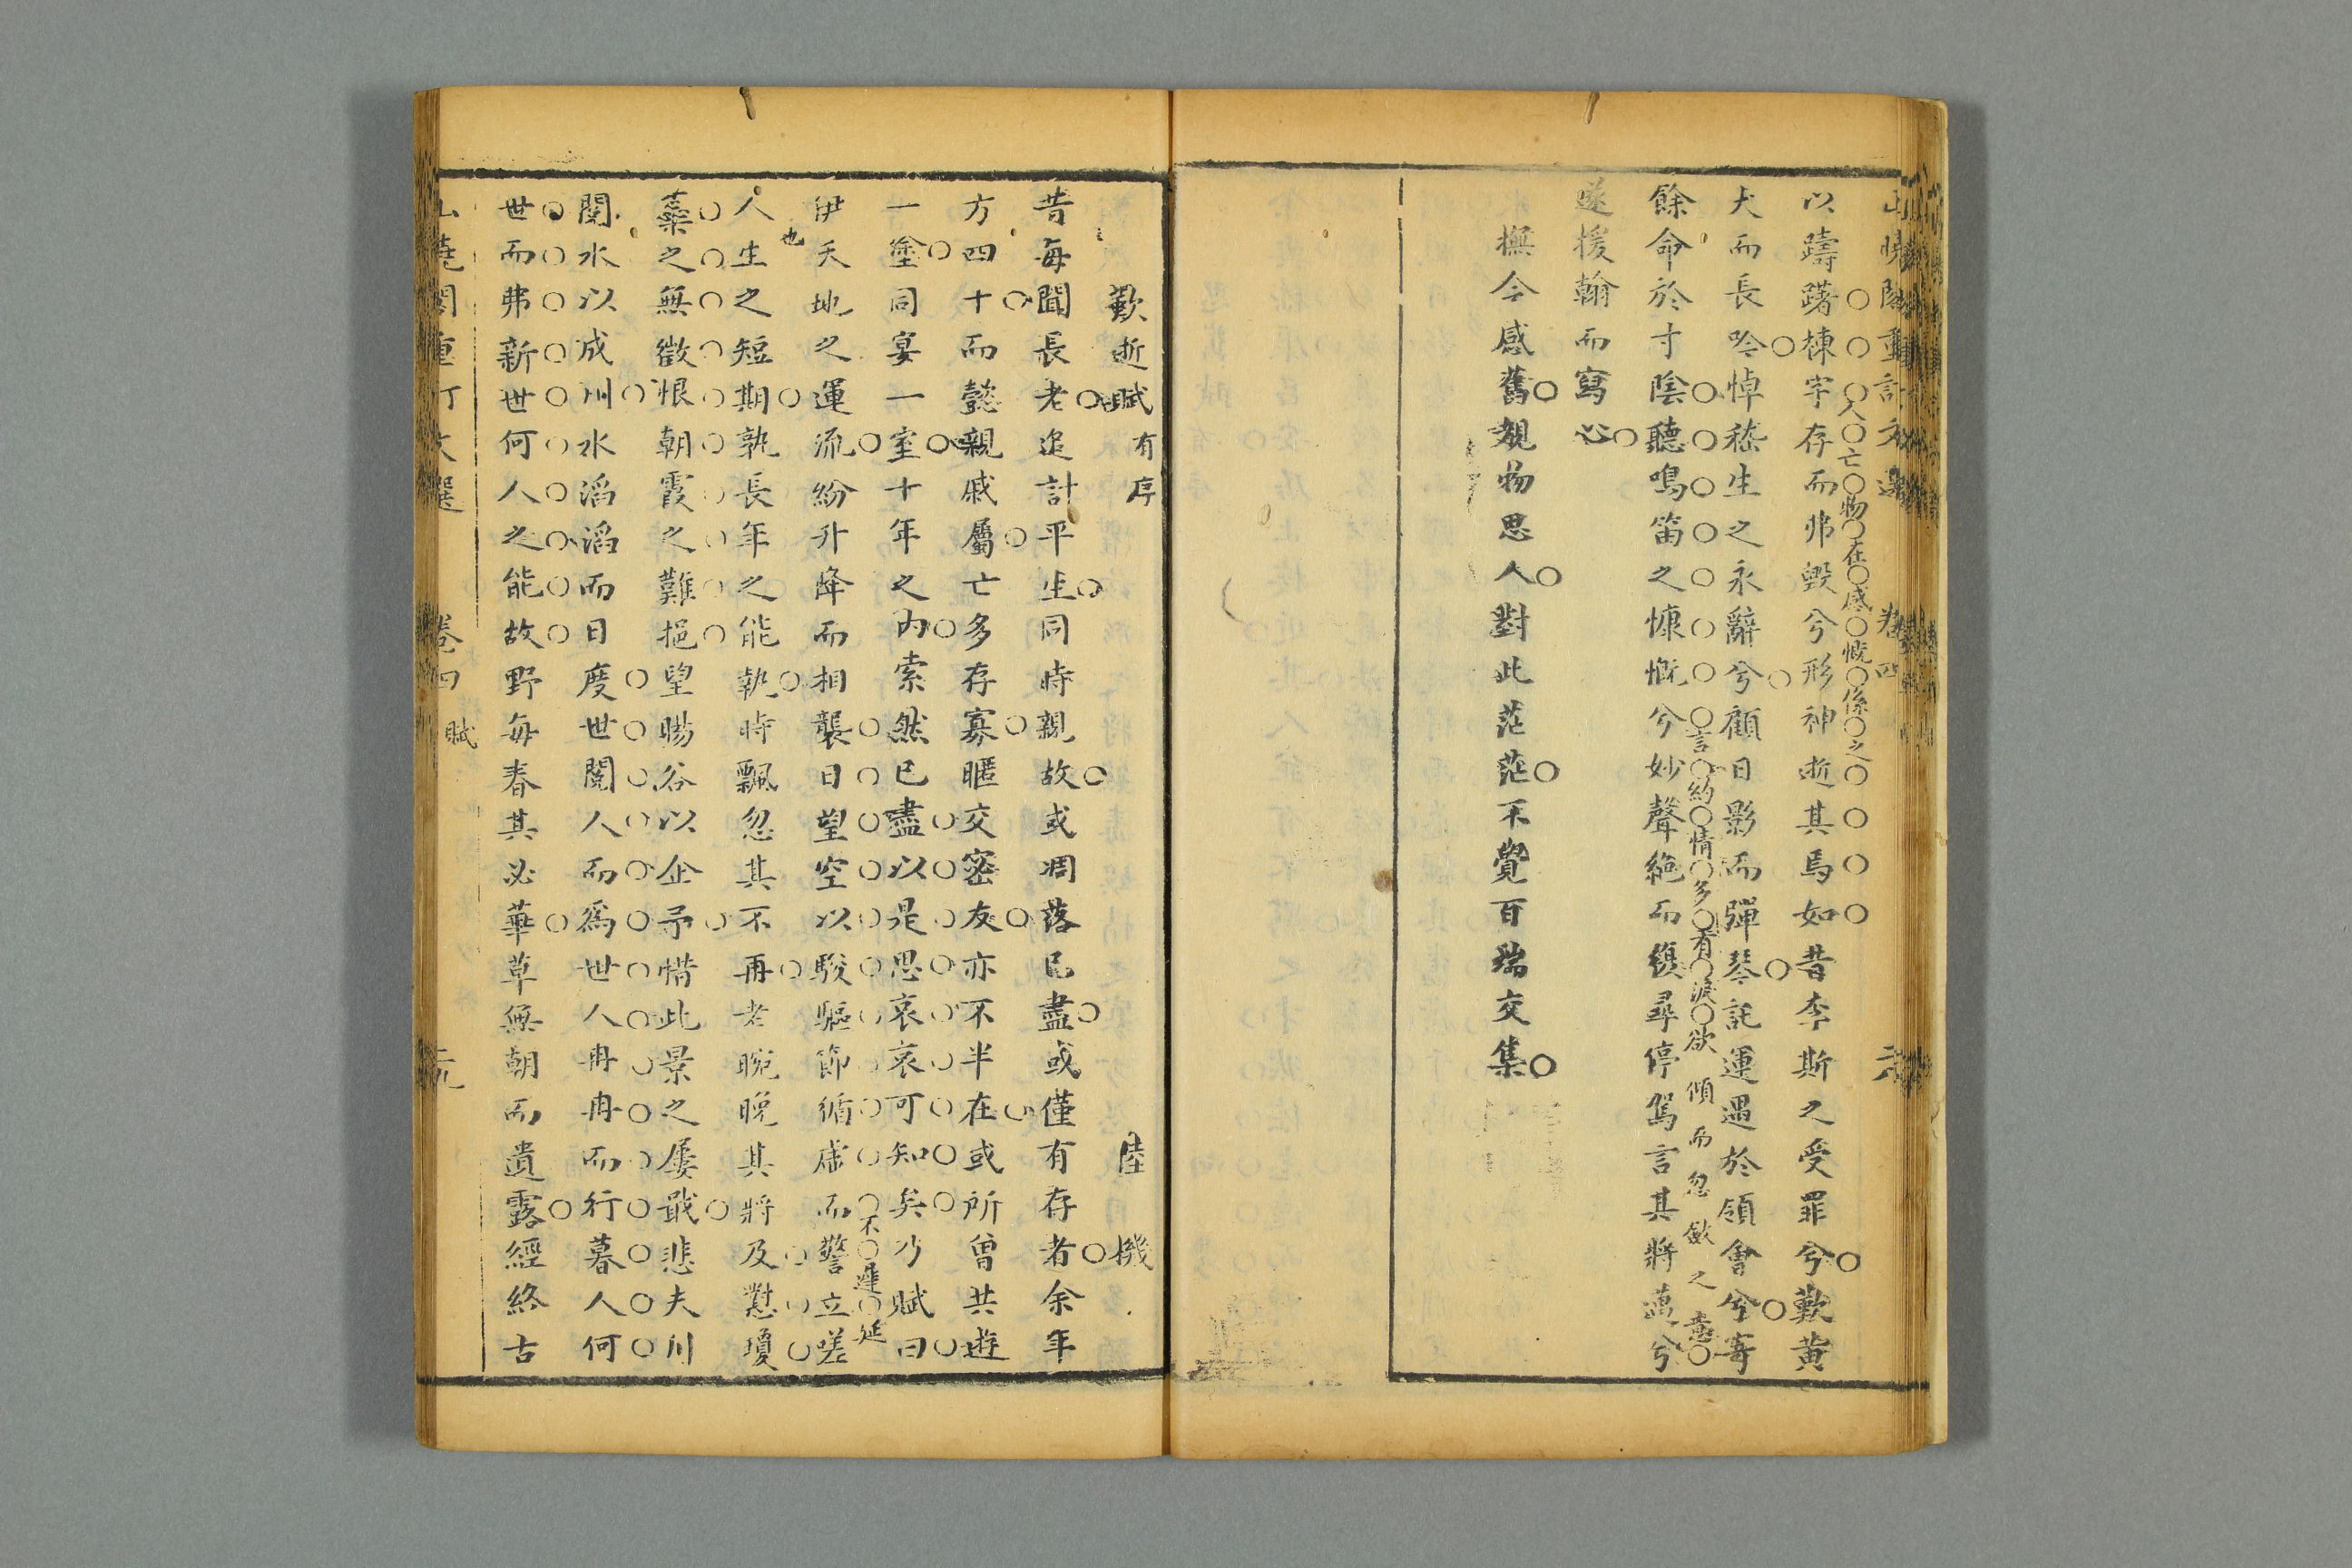 山曉閣重訂文選 卷四
以躊躇棟宇存而弗毀兮形神逝其焉如昔李斯之受罪兮歎黃
人亡物在感慨係之
犬而長吟悼嵇生之永辭兮顧日影而彈琴託運遇於領會兮寄
餘命於寸陰聽鳴笛之慷慨兮妙聲絶而復尋停駕言其將邁兮
言約情多有淚欲傾而忽斂之意
遂援翰而寫心
撫今感舊覩物思人對此茫茫不覺百端交集
歎逝賦 有序 陸機
昔每聞長老追計平生同時親故或凋落已盡或僅有存者余年
方四十而懿親戚屬亡多存寡暱交密友亦不半在或所曾共遊
一塗同宴一室十年之內索然已盡以是思哀哀可知矣乃賦曰
伊天地之運流紛升降而相襲日望空以駿驅節循虛而警立嗟
不遲延也
人生之短期孰長年之能執時飄忽其不再老晼晚其將及懟瓊
蘂之無徵恨朝霞之難挹望暘谷以企予惜此景之屢戢悲夫川
閱水以成川水滔滔而日度世閱人而爲世人冉冉而行暮人何
世而弗新世何人之能故野每春其必華草無朝而遺露經終古
山曉閣重訂文選 卷四 賦